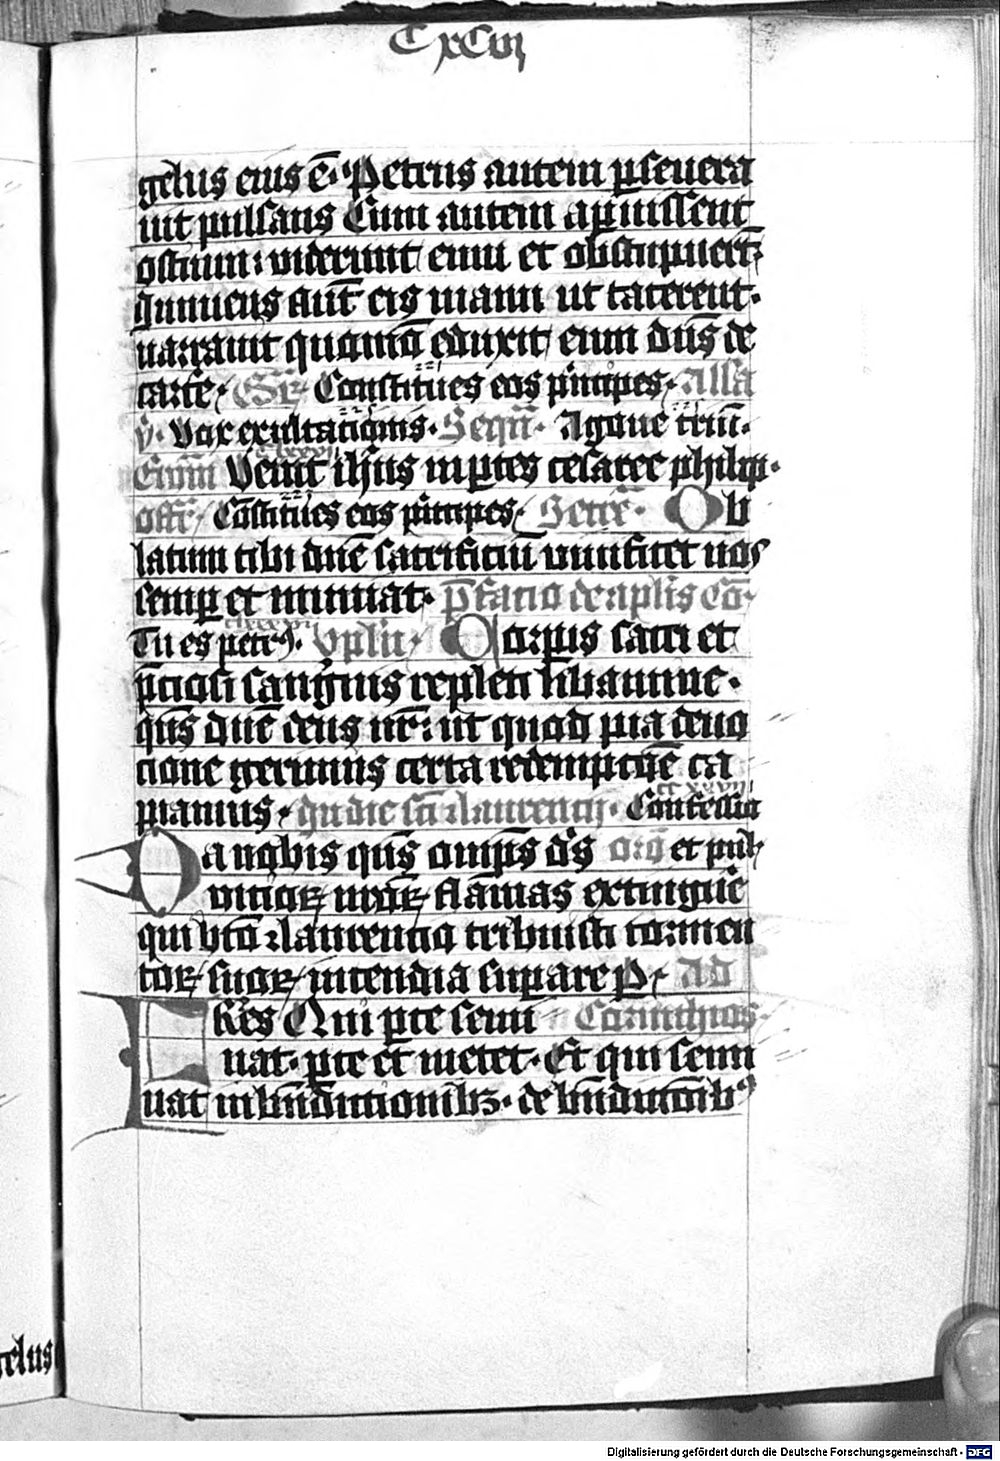 CxCiii
gelus eius ē· Petrus autem ꝑseuera
uit pulsans Cum autem aꝑuissent
ostium: uiderunt eum et obstupuerūt·
Innuens aūt eis manu ut tacerent·
narrauit quomō eduxit eum dn̄s de
carcē· Gr̄· Constitues eos pͥncipes· Alla
v̄· Vox exultacionis· Seqū· Agone triū·
Ewm̄ Venit ih̄us in ꝑtes cesaree philip·
offr̄ Cōstitues eos pͥncipes Secr̄· Ob
latum tibi dn̄e sacrificiū uiuificet nos
semꝑ et muniat· p̄facio de apl̄is Cō·
Tu es petr9· Vplīt Corpis sacri et
p̄ciosi sanguinis repleti libamine·
qs̄ dn̄e deus nr̄: ut quod pia deuo
cione gerimus certa redempcōe ca
piamus· In die scī laurencij· Confessio
Da nobis qs̄ omp̄s ds̄ oro et pulc
viciorꝝ nr̄orꝝ flāmas extinguē
qui bt̄o laurencio tribuisti tormen
torꝝ suorꝝ incendia suꝑare P· Ad
Fr̄es Qui ꝑce semi Corinthios·
nat· ꝑce et metet· Et qui semi
nat in bn̄dictionibꝫ· de bn̄dictōib9
gelus
Digitalisierung gefördert durch die Deutsche Forschungsgemeinschaft - DFG